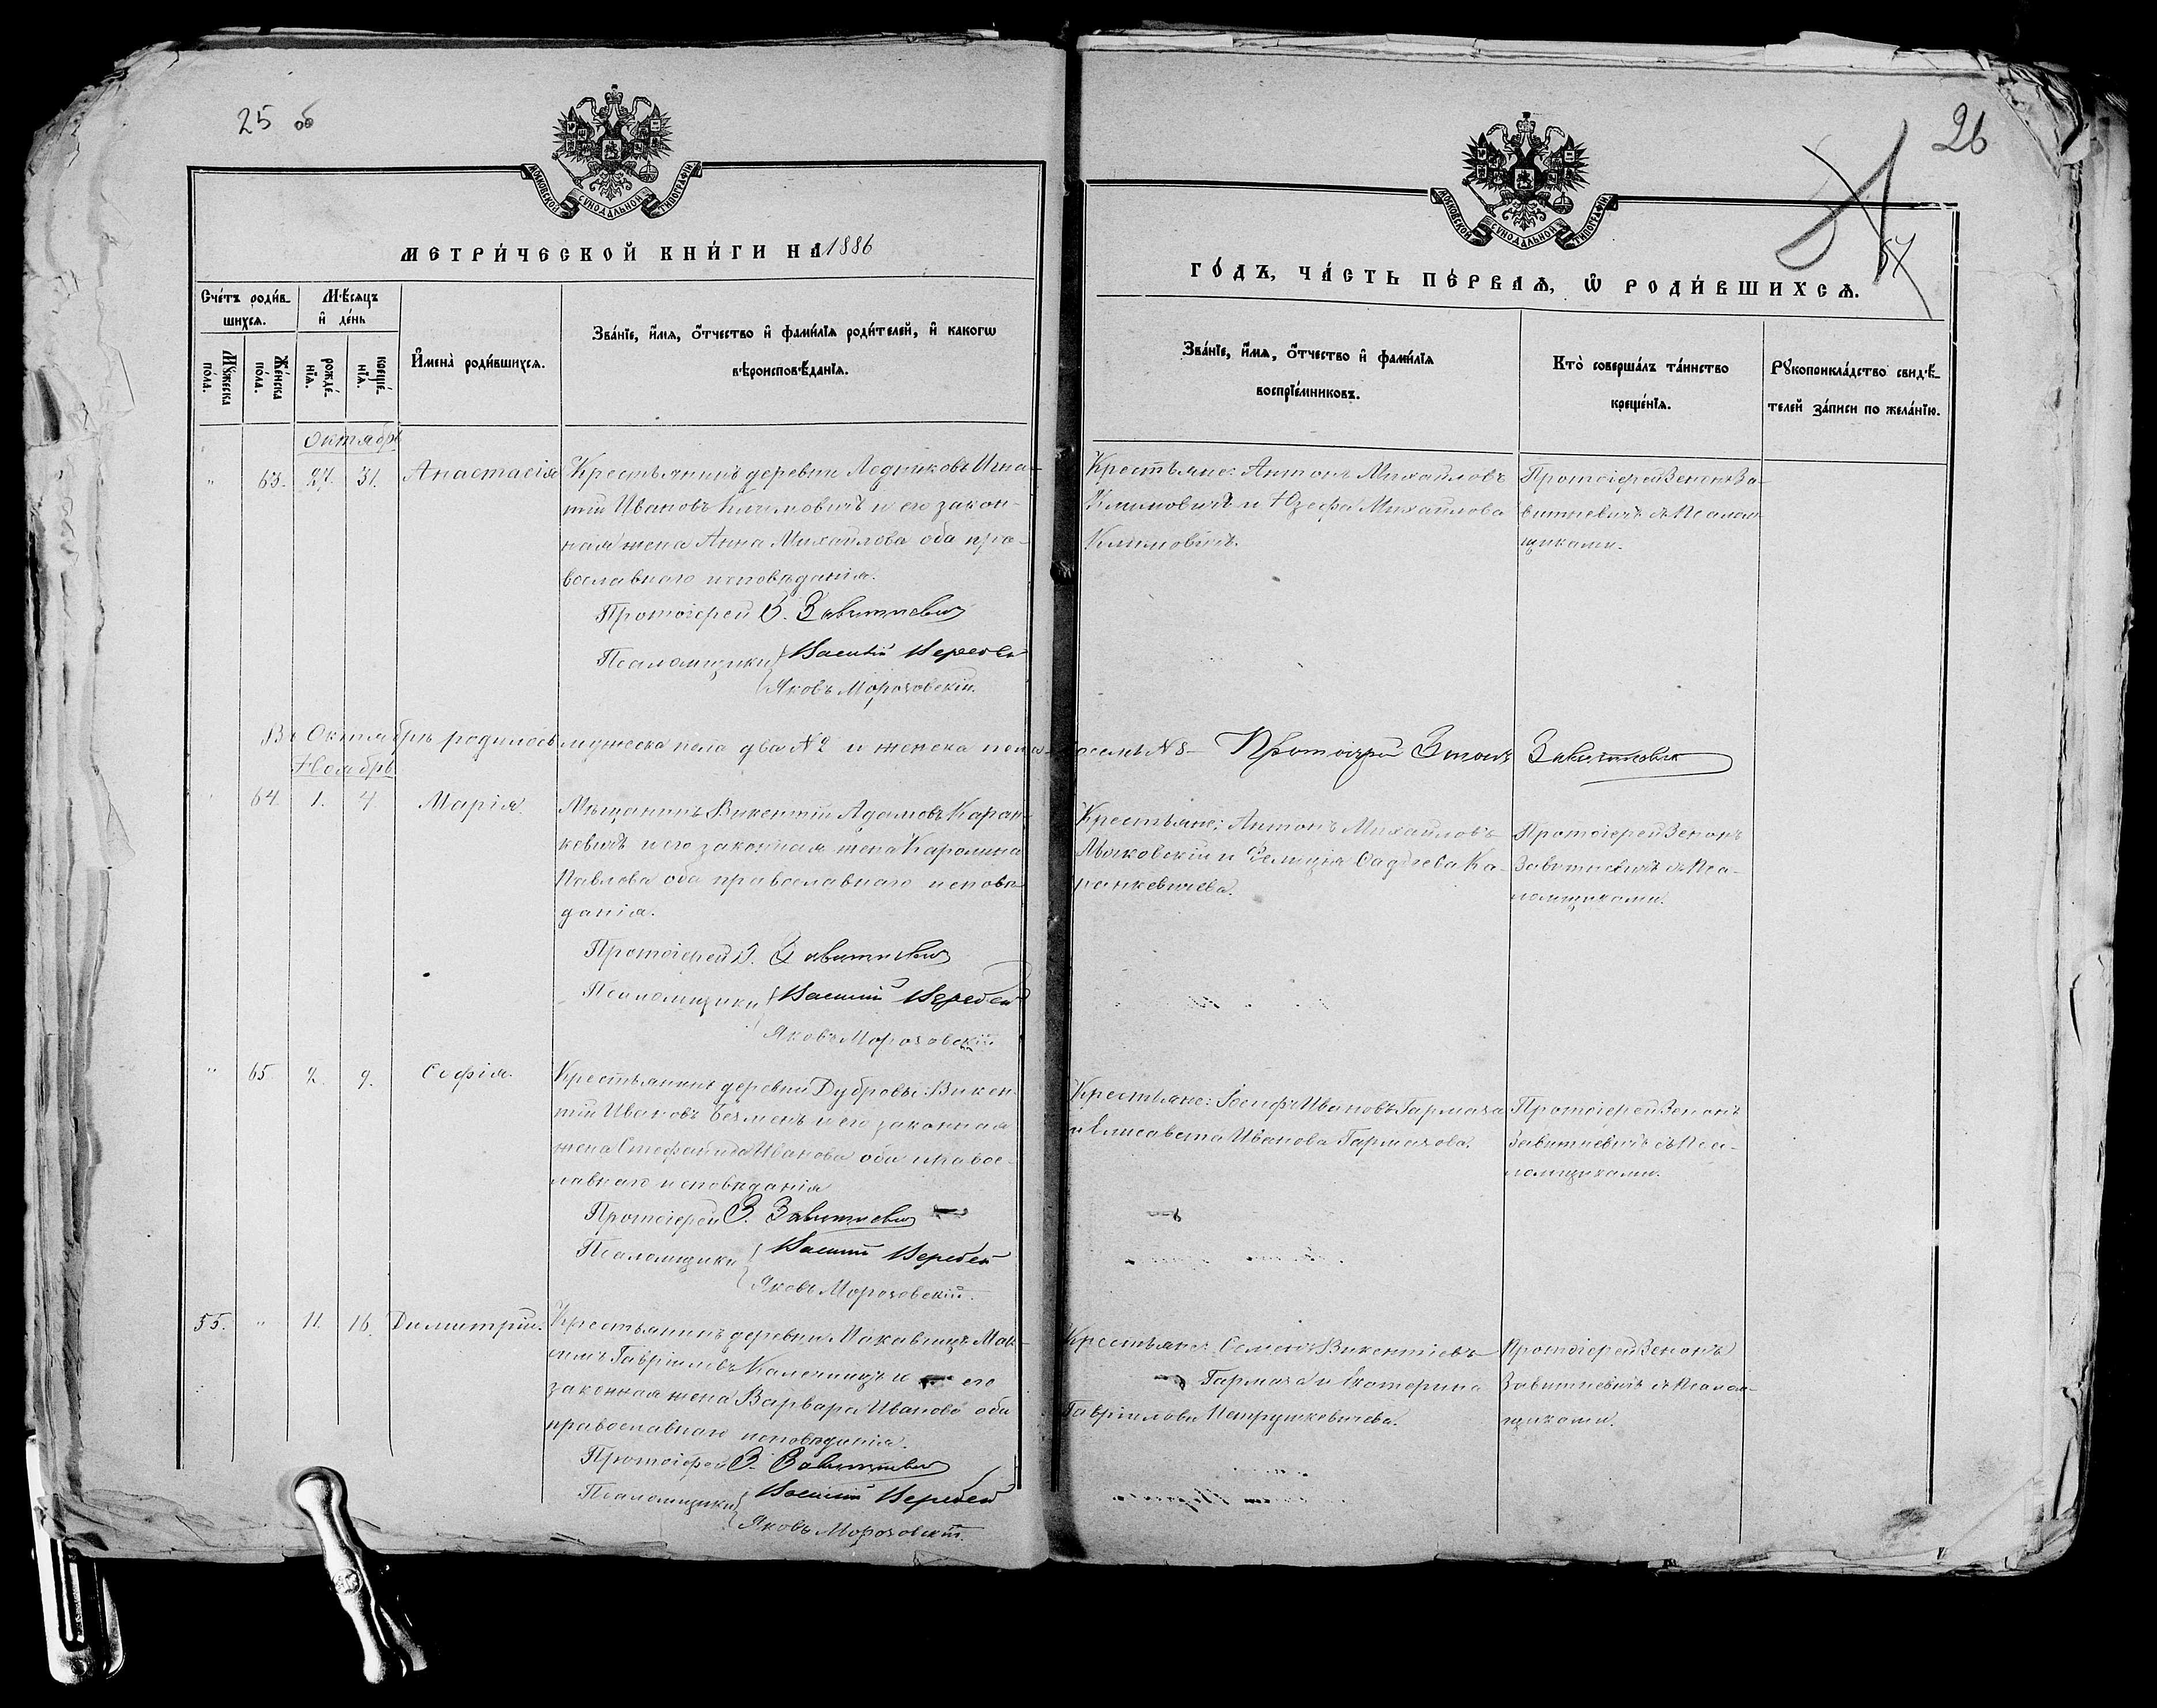 25 об
МОСКОВСКОЙ СѴНОДАЛЬНОЙ ТИПОГРАФІИ
МЕТРИ́ЧЕСКОЙ КНИ́ГИ НА 1886
Сче́тъ роди́в-
шихсѧ.
Мѣ́сяцъ
и҆ де́нь
Мꙋ́жеска
по́ла.
Же́нска
по́ла.
рожде́-
нїѧ.
креще́-
нїѧ.
И҆мена̀ роди́вшихсѧ.
Зва́нїе, и҆́мѧ, ѻ҆́тчество и҆ фами́лїѧ роди́телей, и҆ какогѡ
вѣроисповѣ́данїѧ.
Октябрь
" 63. 27. 31. Анастасія
Крестьянинъ деревни Ледниковъ Игна-
тій Ивановъ Климовичъ и его закон-
ная жена Анна Михайлова оба пра-
вославнаго исповѣданія.
Протоіерей З. Завитневич
Псаломщики Василій
Яковъ Морозовскій.
Въ Октябрѣ родилось мужеска пола два № 2 и женска пола
Ноябрь
64. 1. 4. Марія.
Мѣщанинъ Викентій Адамовъ Каран-
кевичъ и его законная жена Каролина
Павлова оба православнаго исповѣ
данія.
Протоіерей З. Завитневич
Псаломщики Василій
Яковъ Морозовскій.
" 65. 2. 9. Софія.
Крестьянинъ деревни Дубровы: Викен-
тій Ивановъ Безменъ и его законная
жена Стефанида Иванова оба правос-
лавнаго исповѣданія
Протоіерей З. Завитневич
Псаломщики Василій
Яковъ Морозовскій.
55. " 11. 16. Димитрій.
Крестьянинъ деревни Мак-
симъ Гавріиловъ Калечицъ и его
законная жена Варвара Иванова оба
православнаго исповѣданія.
Протоіерей З. Завитневич
Псаломщики Василій
Яковъ Морозовскій.
26
57
МОСКОВСКОЙ СѴНОДАЛЬНОЙ ТИПОГРАФІИ
ГО́ДЪ, ЧА́СТЬ ПЕ́РВАѦ, Ѡ҆ РОДИ́ВШИХСѦ.
Зва́нїе, и҆́мѧ, ѻ҆́тчество и҆ фами́лїѧ
воспрїе́мниковъ.
Кто̀ соверша́лъ та́инство
креще́нїѧ.
Рꙋкоприкла́дство свидѣ́-
телей за́писи по жела́нїю.
Крестьяне: Антонъ Михайловъ
Климовичъ и Юзефа Михайлова
Климовичъ.
Протоіерей Зенонъ За-
витневичъ съ Псалом-
щиками.
восемь № 8 – Протоіерей Зенонъ Завитневич
Крестьяне: Антонъ Михайловъ
и Фелиція Фадѣева Ка-
ранкевичева.
Протоіерей Зенонъ
Завитневичъ съ Пса-
ломщиками.
Крестьяне: Іосифъ Ивановъ Гармаза
и Елисавета Иванова Гармазова.
Протоіерей Зенонъ
Завитневичъ съ Пса-
ломщиками.
Крестьяне: Семенъ Викентіевъ
Гармаза и Екатерина
Гавріилова Петрушкевичева.
Протоіерей Зенонъ
Завитневичъ съ Псалом-
щиками.